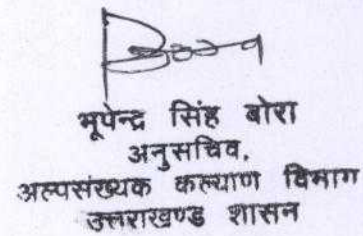 Bora
भूपेन्द्र सिंह बोरा
अनुसचिव,
अल्पसंख्यक कल्याण विभाग
उत्तराखण्ड शासन